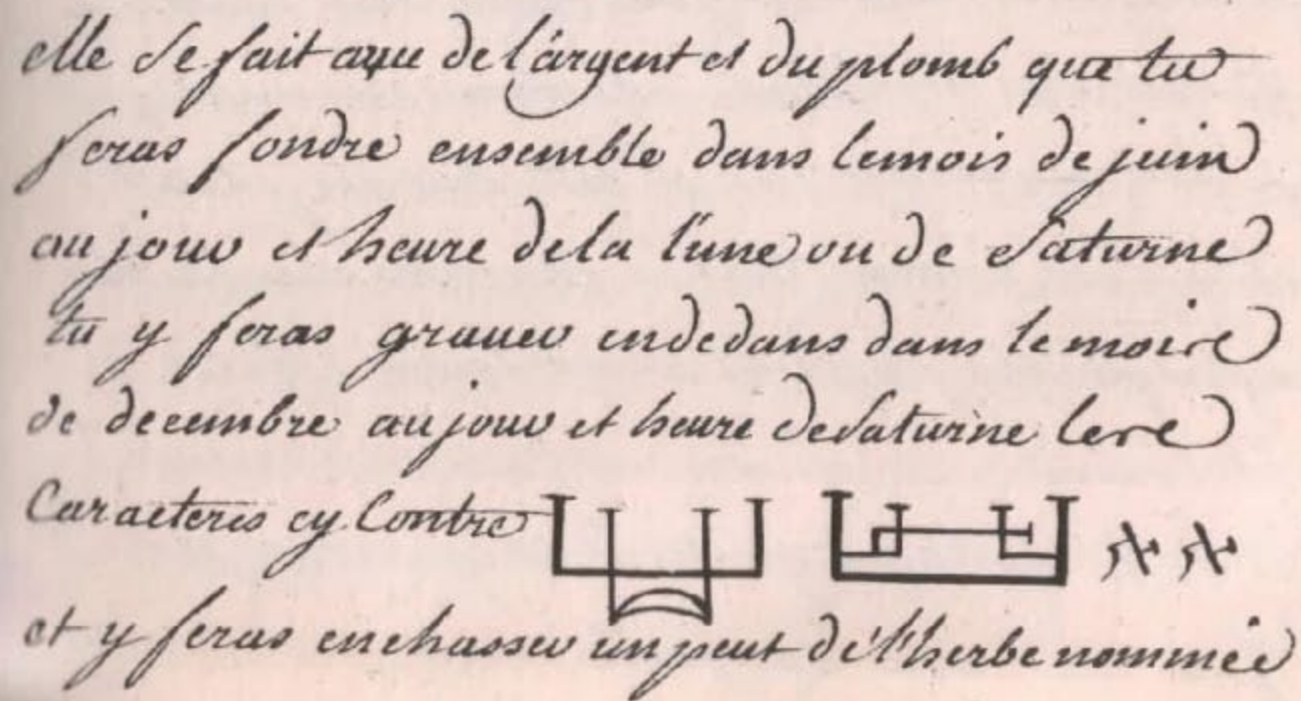 elle se fait aque de l'argent et du plomb que tu
feras fondre ensemble dans lemois de juin
au jour et heure dela l'une ou de Saturne
tu y feras grauer endedans dans le moire
de decembre aujour et heure deSaturne lere
Caracteres cy Contre
et y feras enchasser un peut dé l'herbe nommée